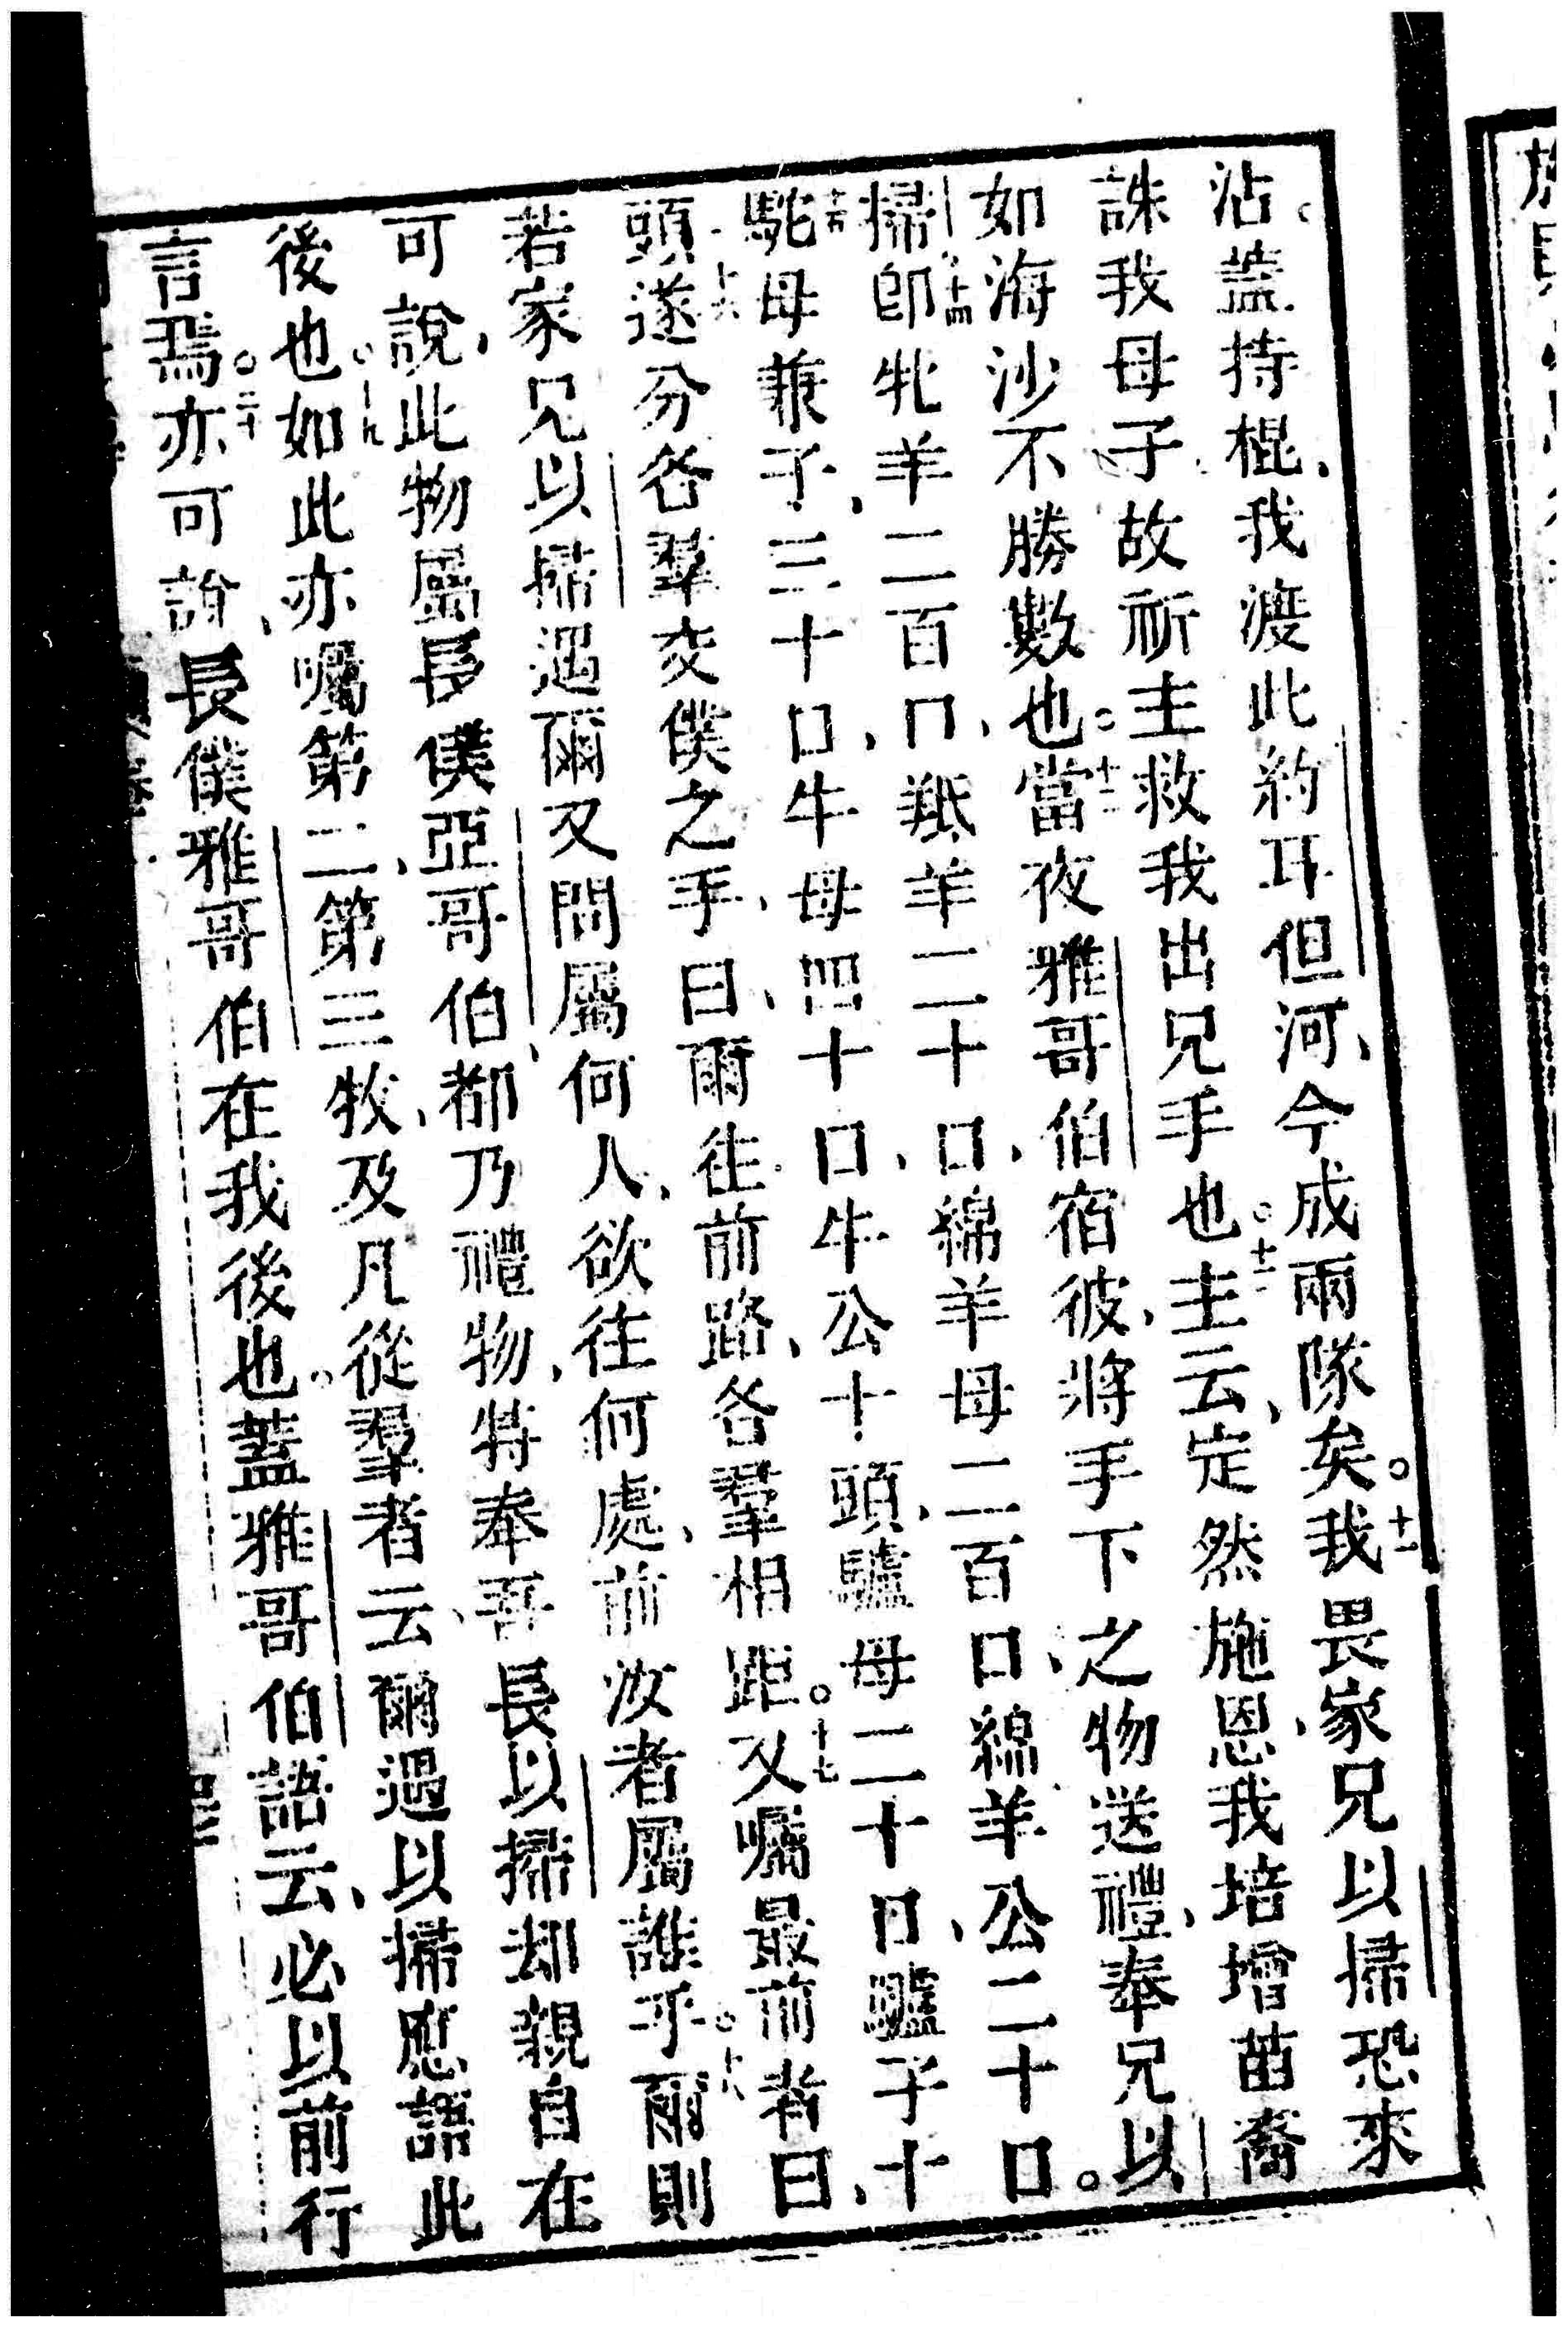 沾。蓋持棍、我渡此約耳但河、今成兩隊矣。○十一我畏家兄以掃恐來
誅我母子故祈主救我出兄手也。○十二主云、定然施恩、我培增苗裔
如海沙不勝數也。○十三當夜雅哥伯宿彼、將手下之物送禮、奉兄以
掃○十四卽牝羊二百口、羝羊二十口、綿羊母二百口、綿羊公二十口。
○十五駝母兼子、三十口、牛母四十口、牛公十頭、驢母二十口、驢子十
頭○十六遂分各羣交僕之手、曰、爾往前路、各羣相距。○十七又囑最前者曰、
若家兄以掃遇爾又問屬何人、欲往何處、前汝者屬誰乎。○十八爾則
可說、此物屬長僕亞哥伯、都乃禮物、特奉吾長以掃却親自在
後也。○十九如此亦囑第二、第三牧、及凡從羣者云、爾遇以掃應語此
言焉。○二十亦可說、長僕雅哥伯在我後也。蓋雅哥伯語云、必以前行